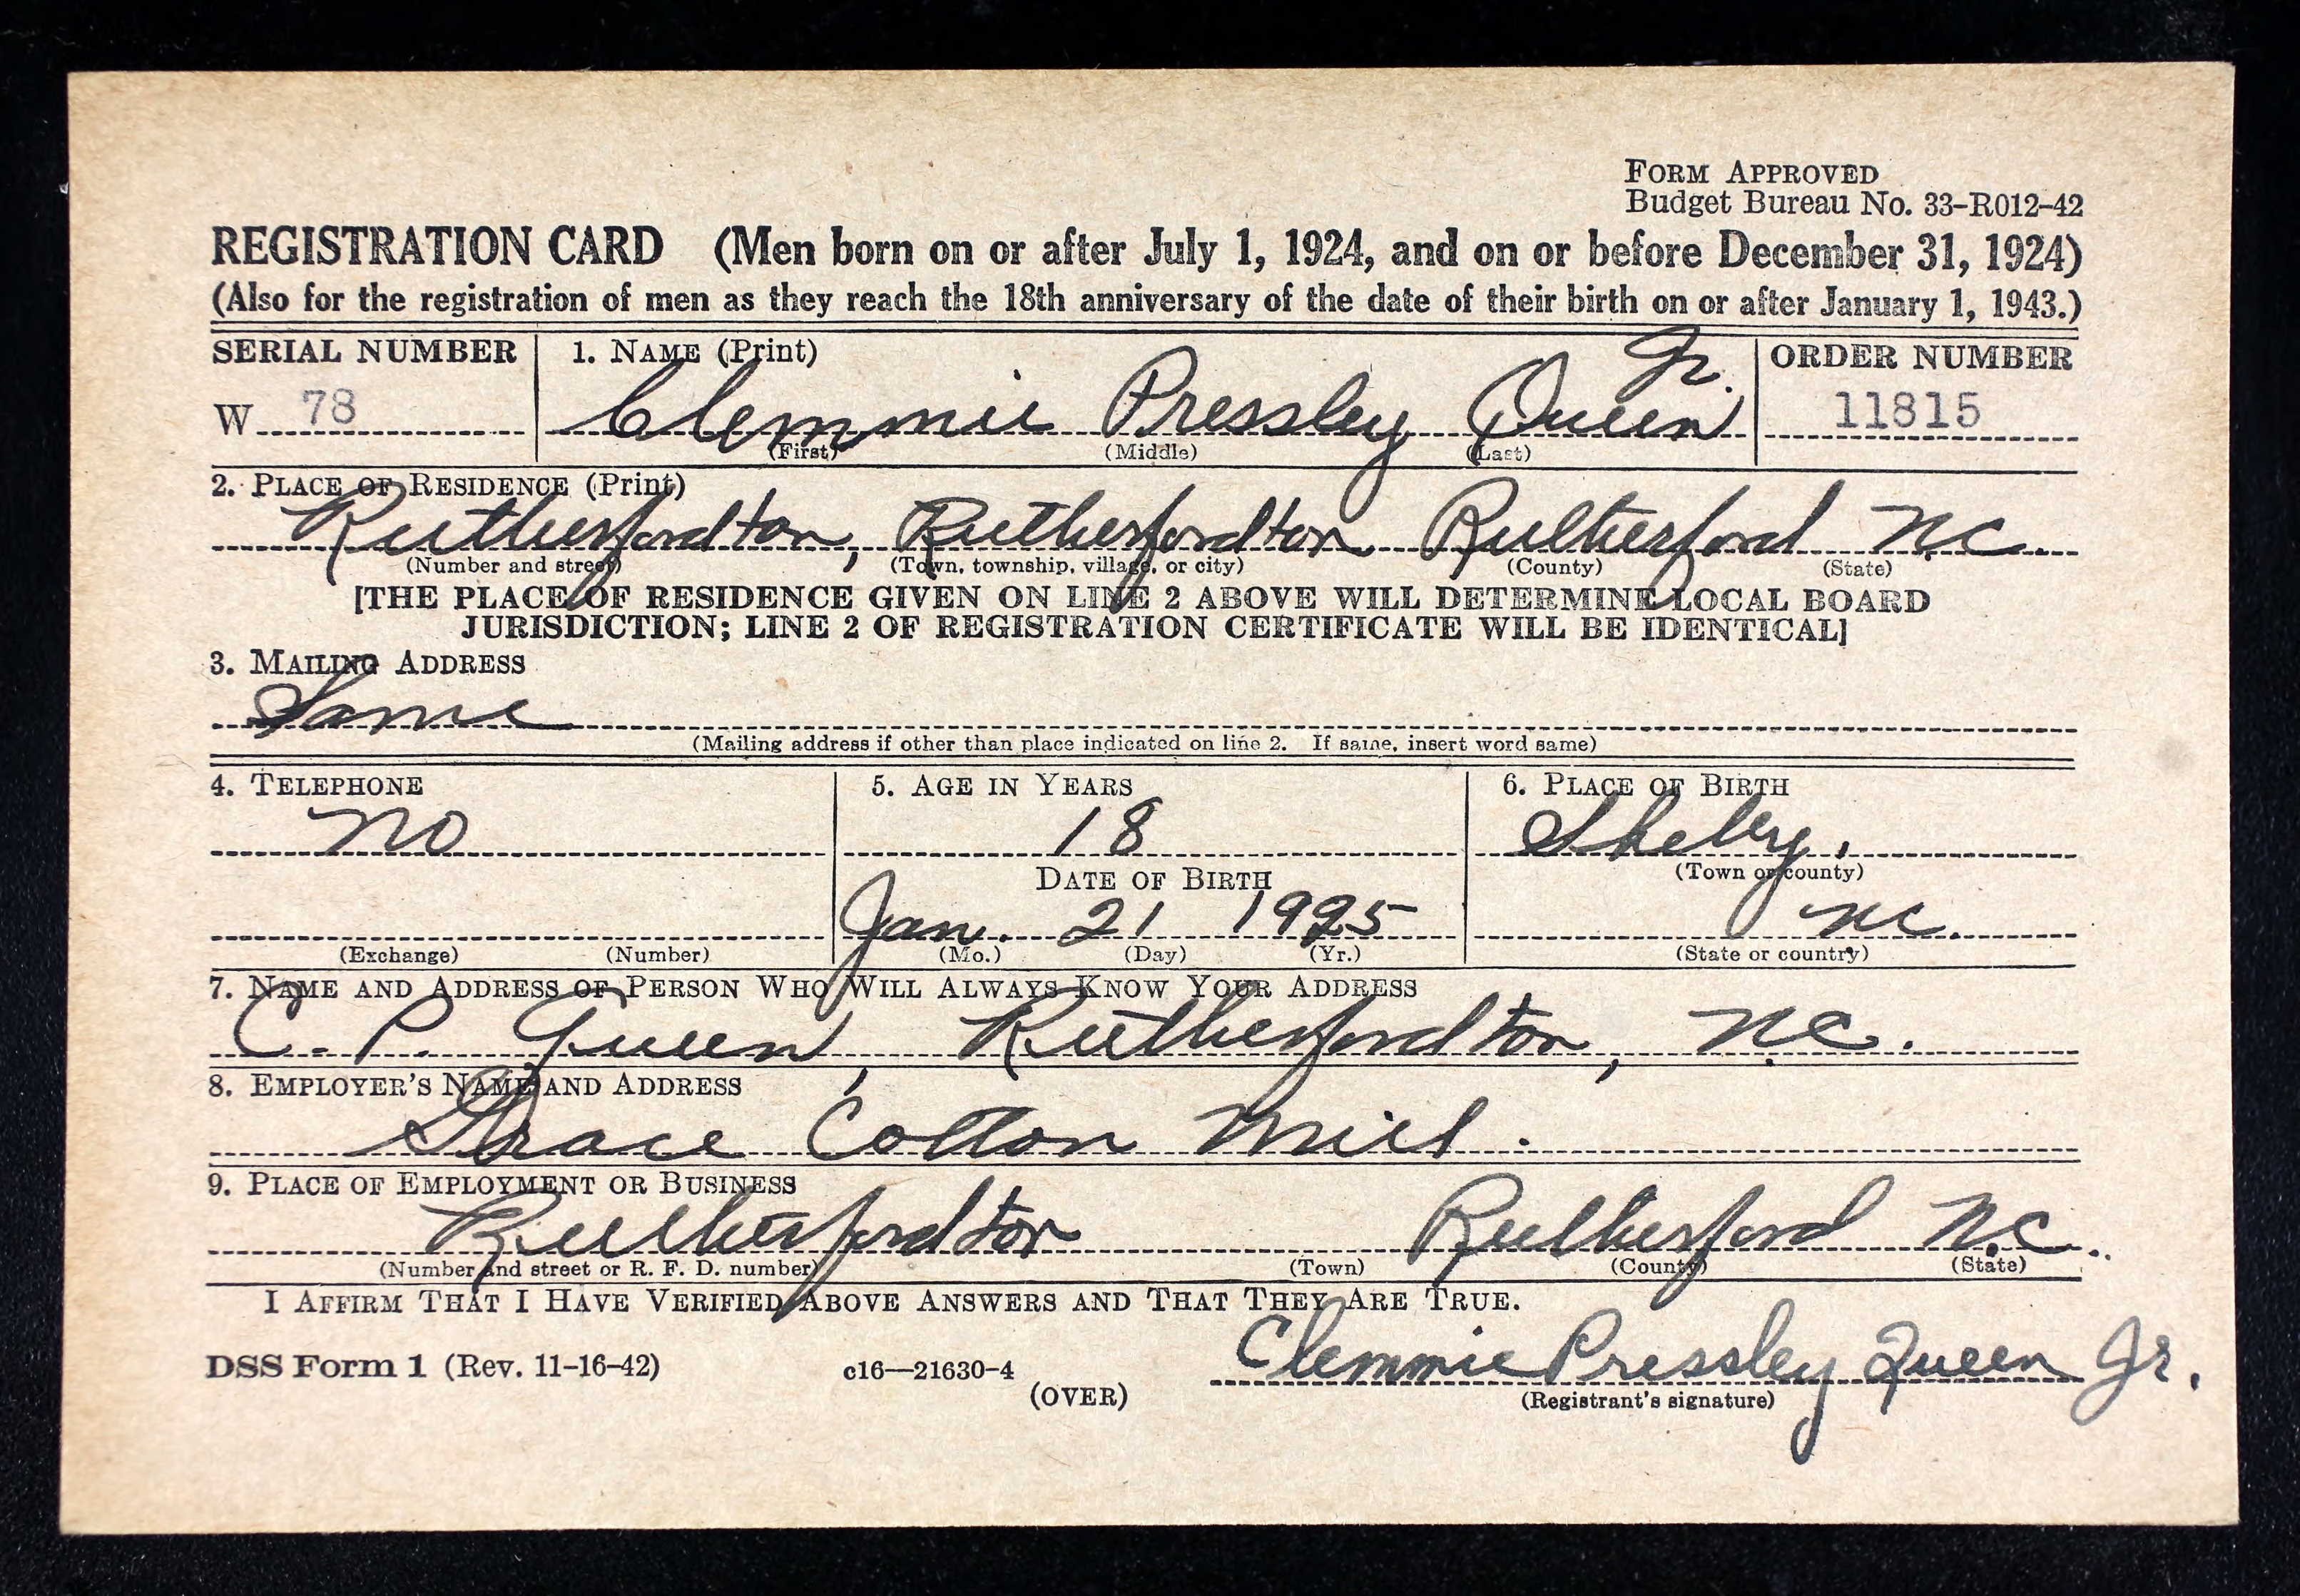 FORM APPROVED
Budget Bureau No. 33-R012-42
REGISTRATION CARD (Men born on or after July 1, 1924, and on or before December 31, 1924)
(Also for the registration of men as they reach the 18th anniversary of the date of their birth on or after January 1, 1943.)
SERIAL NUMBER 1. NAME (Print) ORDER NUMBER
W 78 Clemmie Pressley Queen Jr. 11815
(First) (Middle) (Last)
2. PLACE OF RESIDENCE (Print)
Rutherfordton, Rutherfordton Rutherford N.C.
(Number and street) (Town, township, village, or city) (County) (State)
[THE PLACE OF RESIDENCE GIVEN ON LINE 2 ABOVE WILL DETERMINE LOCAL BOARD
JURISDICTION; LINE 2 OF REGISTRATION CERTIFICATE WILL BE IDENTICAL]
3. MAILING ADDRESS
Same
(Mailing address if other than place indicated on line 2. If same, insert word same)
4. TELEPHONE 5. AGE IN YEARS 6. PLACE OF BIRTH
no 18 Shelby,
DATE OF BIRTH (Town or county)
Jan. 21 1925 N.C.
(Exchange) (Number) (Mo.) (Day) (Yr.) (State or country)
7. NAME AND ADDRESS OF PERSON WHO WILL ALWAYS KNOW YOUR ADDRESS
C. P. Queen, Rutherfordton, N.C.
8. EMPLOYER'S NAME AND ADDRESS
Grace Cotton Mill.
9. PLACE OF EMPLOYMENT OR BUSINESS
Rutherfordton Rutherford N.C.
(Number and street or R. F. D. number) (Town) (County) (State)
I AFFIRM THAT I HAVE VERIFIED ABOVE ANSWERS AND THAT THEY ARE TRUE.
DSS Form 1 (Rev. 11-16-42) c16—21630-4 Clemmie Pressley Queen Jr.
(OVER) (Registrant's signature)